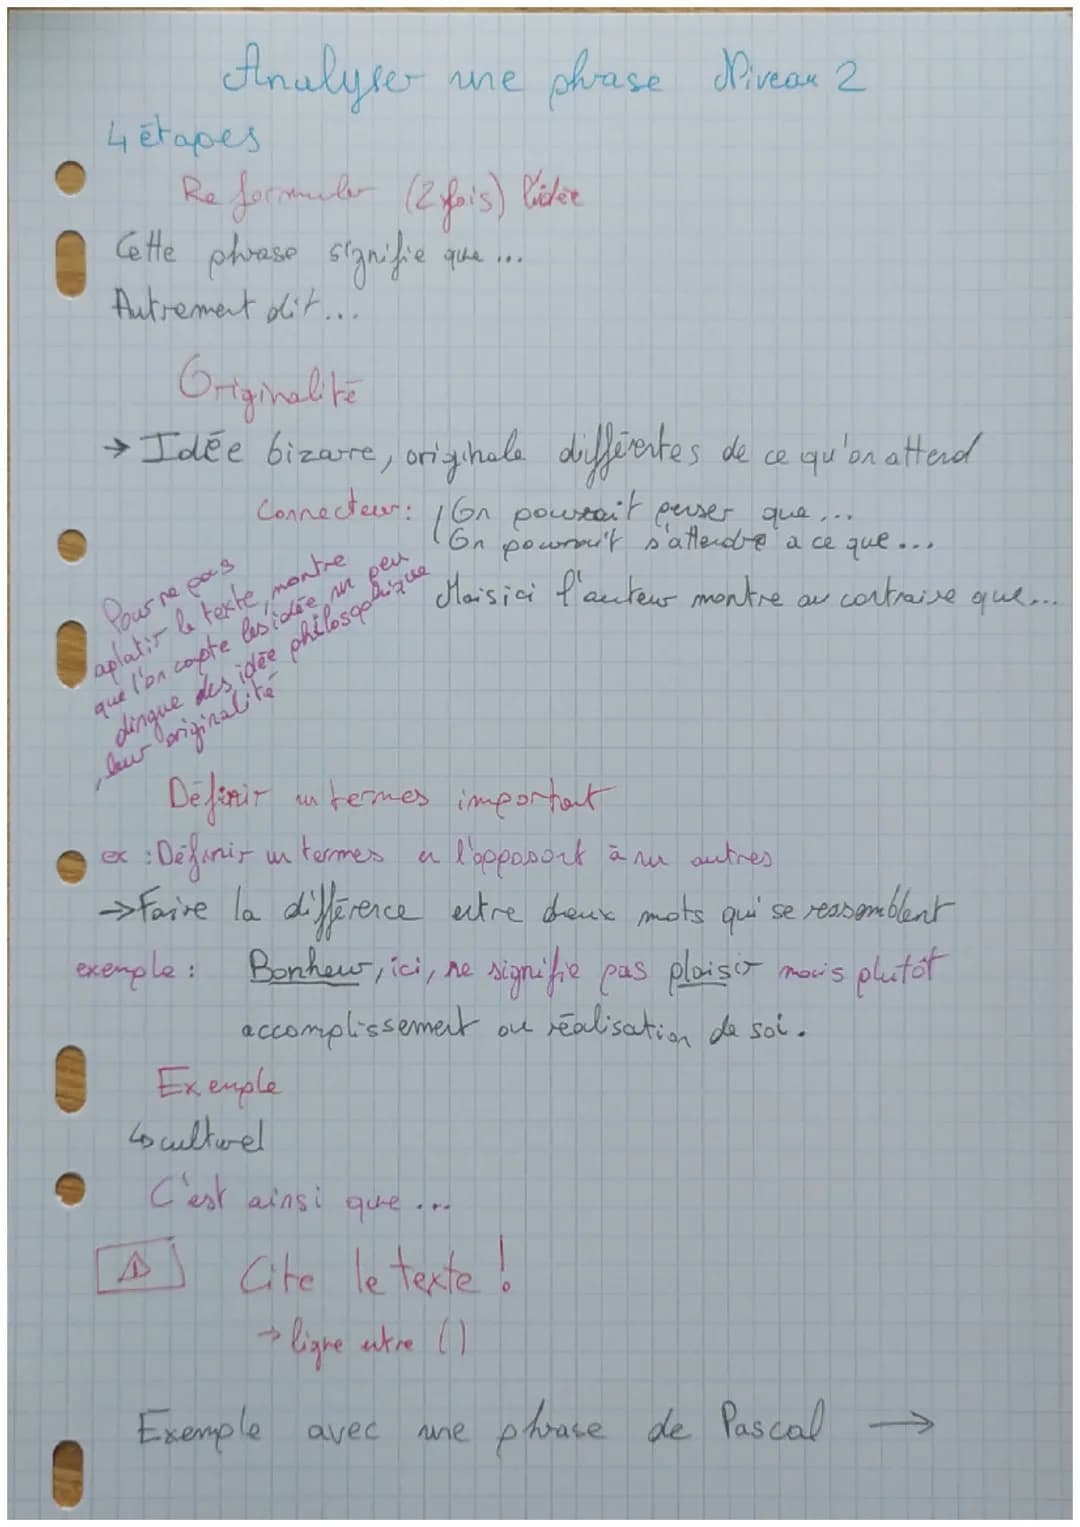 Analyser une phrase Niveau 2
4 étapes
Reformuler (2 fois) l'idée
Cette phrase signifie que ...
Autrement dit...
Originalité
→ Idée bizarre, originale différentes de ce qu'on attend
Connecteur: On pourrait penser que...
On pourrait s'attendre à ce que...
Mais ici l'auteur montre au contraire que...
Pour ne pas
aplatir le texte, montre
que l'on capte les idée un peu
dingue des idée philosophique
, leur originalité
Définir un termes important
ex : Définir un termes en l'opposant à un autres
→ Faire la différence entre deux mots qui se ressemblent
exemple : Bonheur, ici, ne signifie pas plaisir mais plutôt
accomplissement ou réalisation de soi.
Exemple
↳ culturel
C'est ainsi que ...
⚠ Cite le texte !
→ ligne entre ()
Exemple avec une phrase de Pascal →